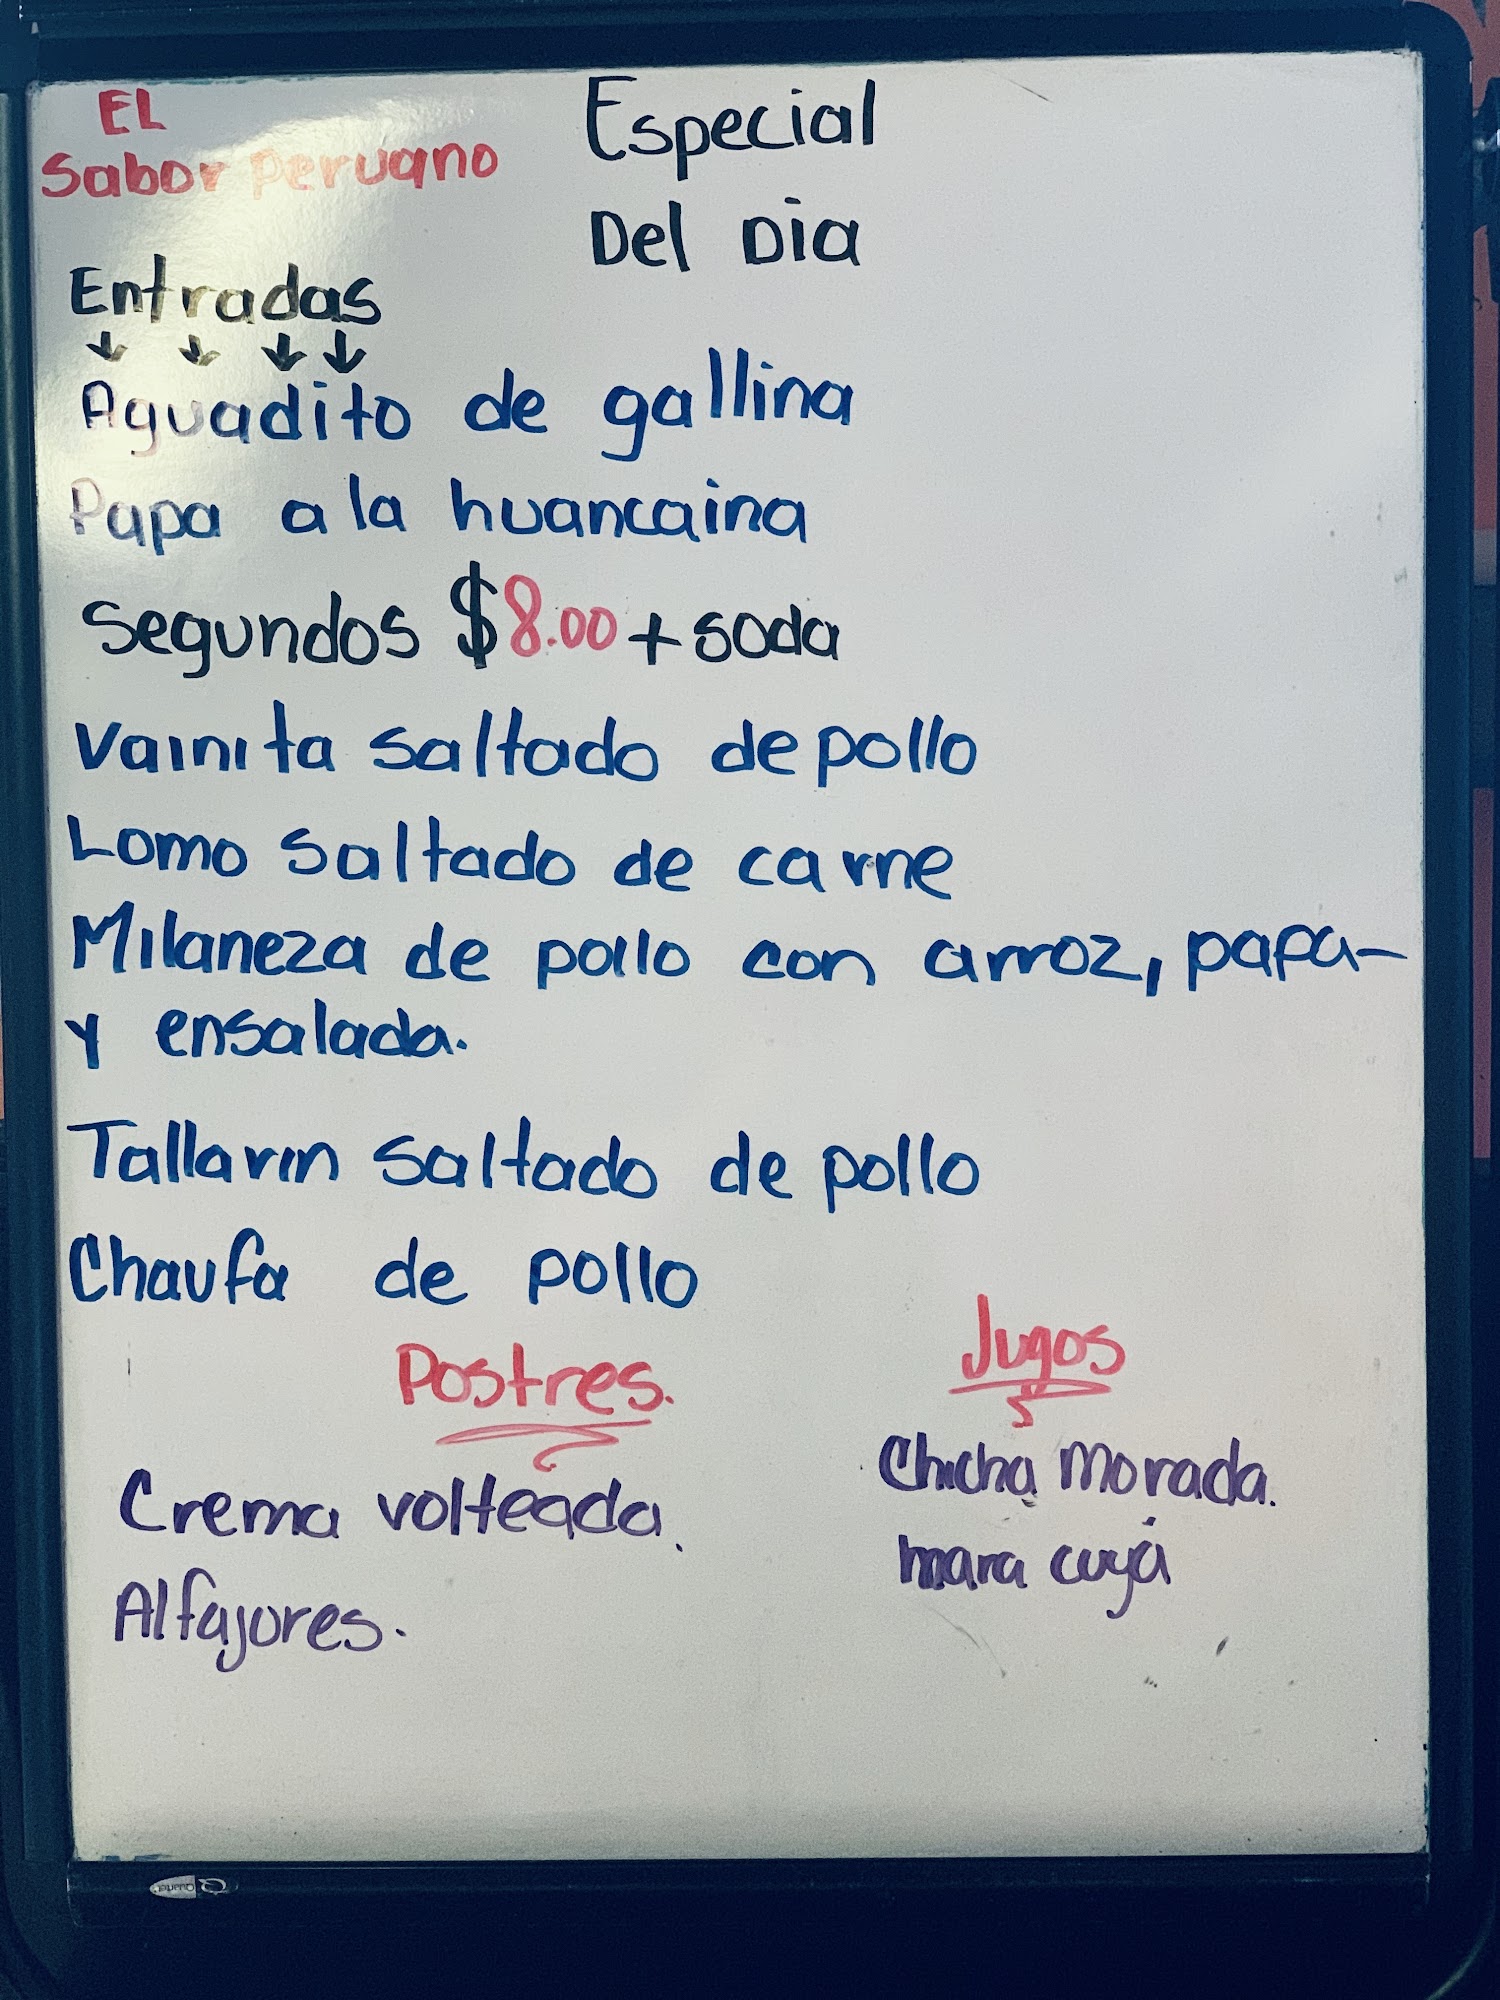 EL
Sabor Peruano
Especial
Del Dia
Entradas
Aguadito de gallina
Papa a la huancaina
Segundos $8.00 + soda
Vainita saltado de pollo
Lomo saltado de carne
Milaneza de pollo con arroz, papa-
y ensalada.
Tallarin saltado de pollo
Chaufa de pollo
Postres.
Crema volteada.
Alfajores.
Jugos
Chicha morada.
mara cuyá
Quartet